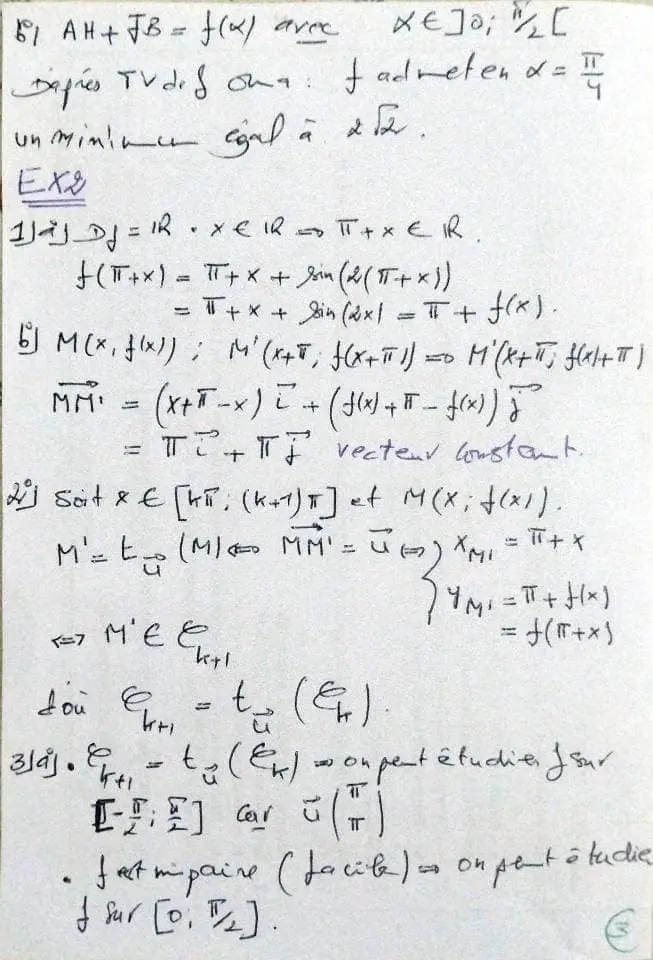 b) AH + JB = f(α) avec α ∈ ]0; π/2[
D'après TV de f on a : f admet en α = π/4
un minimum égal à 2√2.
EX2
1) a) Df = ℝ • x ∈ ℝ ⇒ π + x ∈ ℝ.
f(π+x) = π + x + sin(2(π+x))
= π + x + sin(2x) = π + f(x).
b) M(x, f(x)) ; M'(x+π; f(x+π)) ⇒ M'(x+π; f(x)+π)
MM'→ = (x+π-x) i→ + (f(x)+π-f(x)) j→
= π i→ + π j→ vecteur constant.
2°) Soit x ∈ [kπ; (k+1)π] et M(x; f(x)).
M' = t_u→ (M) ⇔ MM'→ = u→ ⇔ { x_M' = π + x
y_M' = π + f(x)
= f(π+x)
⇔ M' ∈ 𝒞_k+1
d'où 𝒞_k+1 = t_u→ (𝒞_k).
3) a) • 𝒞_k+1 = t_u→ (𝒞_k) ⇒ on peut étudier f sur
[-π/2; π/2] car u→ (π π)
• f est impaire (facile) ⇒ on peut étudie
f sur [0, π/2].
3